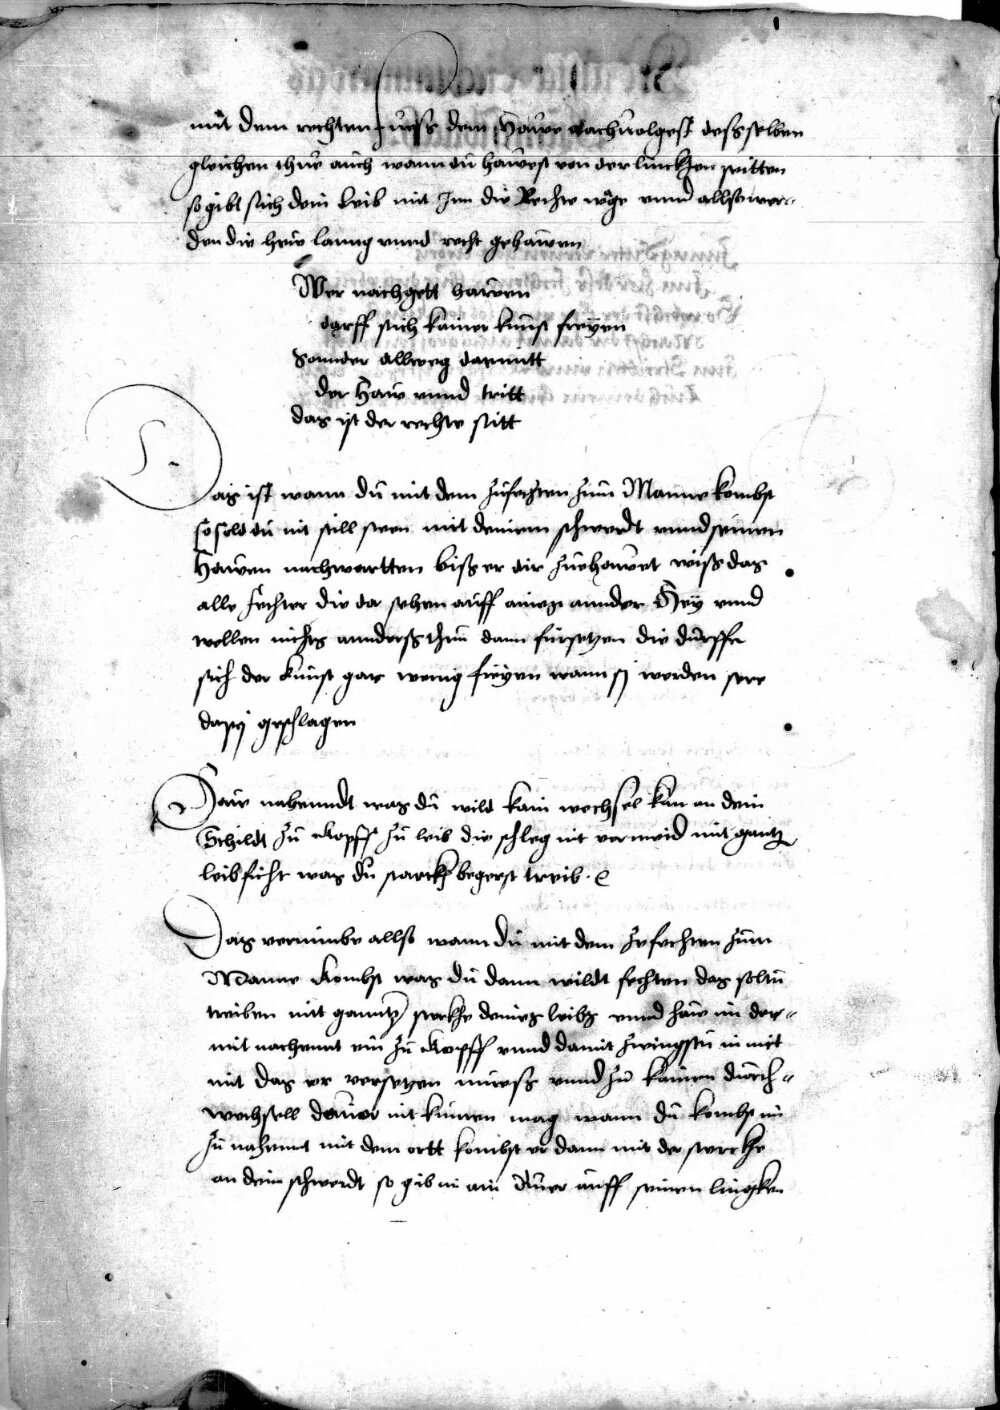 mit dem rechten fuess dem Hawe nachuolgest desselben
gleichen thue auch wann du hawest von der lincken seitten
so gibt sich dein leib mit Inn die Rechte wäge vnnd allso wer-
den die hew lanng vnnd recht gehawen
Wer nachgett hawen
darff sich kainer kunst freyen
Sonnder allweg darmitt
der Haw vnnd tritt
das ist der rechte sitt
Das ist wann du mit dem zufechten zum Manne kombst
so sold du nit still steen mit deinem schwerdt vnnd seinen
Hawen nachwartten biss er dir zuehawet wiss das
alle fechter die da sehen auff aines annder Hey vnnd
wellen nichs annderss thun dann fürsetzen die durffe
sich der kunst gar wenig freyen wann sj werden sere
dapej geschlagen
Haw nahenndt was du wild kain wechsel kan an dein
Schildt zu kopff zu leib die schleg nit vermeid mit gantz
leib ficht was du starckh begerst treib
Das vernimbe allso wann du mit dem zefechten zum
Manne kombst was du dann wildt fechten das soltu
treiben mit ganntz sterkhe deines leibs vnnd haw im dar-
mit nachennt ein zu kopff vnnd damit zwingstu in mit
mit das er versetzen muess vnnd zu kainen durch-
wechsell dauor nit kumen mag wann du kombst im
zu nahennt mit dem ortt kombst er dann mit der sterckhe
an dein schwerdt so gib im ain auff seinen lingken